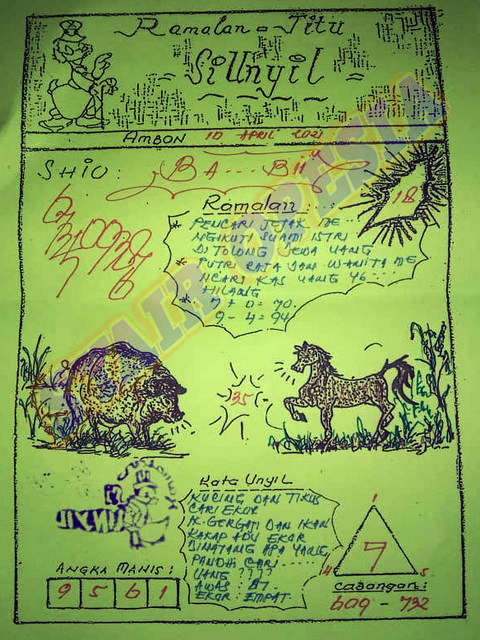 Ramalan = Jitu
SiUnyil
AMBON 10 APRIL 2021
SHIO: BA... BH
18
Ramalan:
* PENCARI JEJAK ME
NGIKUTI SUAMI ISTRI
DI TOLONG JENDA YANG
* PUTRI RATA DAN WANITA ME
NCARI KAS YANG 46
HILANG
* 7 + 0 = 70.
9 - 4 = 94
35
Kata Unyil
KUCING DAN TIKUS
CARI EKOR
K. GERGATI DAN IKAN
KAKAP ADU EKOR
BINATANG APA YANG
PANDAI CARI
UANG ????
AWAS : 87.
EKOR : EMPAT.
ANGKA MANIS:
9 5 6 1
1
7
4 5
CADANGAN:
609 - 732